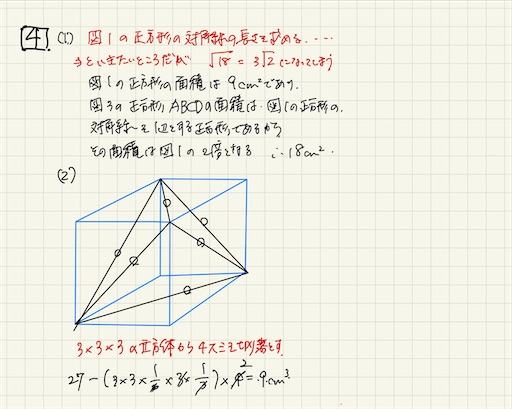 4 (1) 図1の正方形の対角線の長さを求める.....
といきたいところだが √18 = 3√2 になってしまう
図1の正方形の面積は 9cm²であり.
図3の正方形ABCDの面積は、図1の正方形の、
対角線を1辺とする正方形であるから
その面積は図1の2倍となる ∴18cm².
(2)
3×3×3の立方体から4スミを切り落とす.
27 - (3×3×1/2×3×1/3)×4 2 = 9cm³